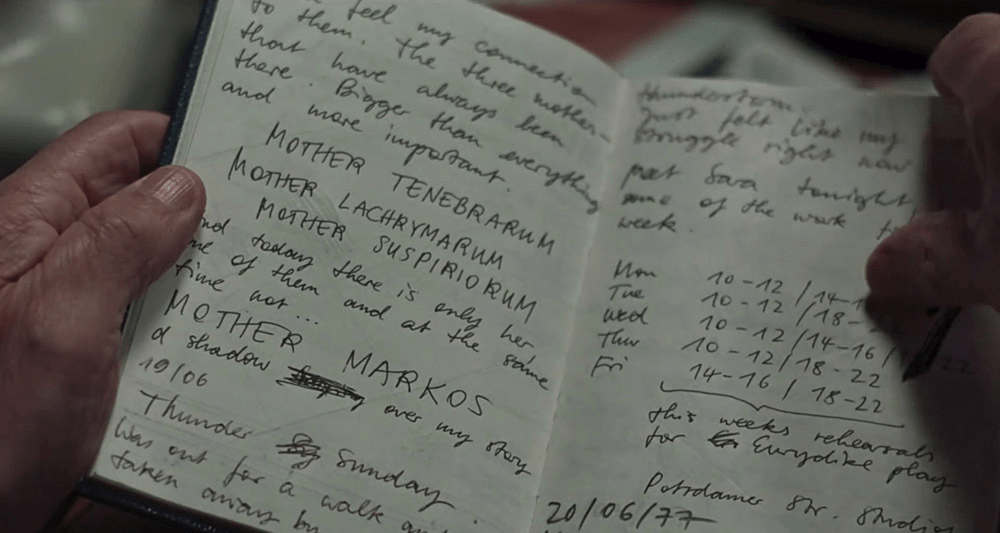 feel my connection
to them. The three mothers
that have always been
there. Bigger than everything
and more important.
MOTHER TENEBRARUM
MOTHER LACHRYMARUM
MOTHER SUSPIRIORUM
and today there is only her
one of them and at the same
time not...
MOTHER MARKOS
d shadow over my story
19/06
Thunder Sunday.
Was out for a walk and
taken away by
thunderstorm.
just felt like my
struggle right now
meet Sara tonight,
some of the work
week.
Mon 10-12 / 14-1
Tue 10-12 / 18-2
Wed 10-12 / 14-16 / 22
Thur 10-12 / 18-22
Fri 14-16 / 18-22
this weeks rehearsals
for Eurydike play
Potsdamer Str. Studio
20/06/77